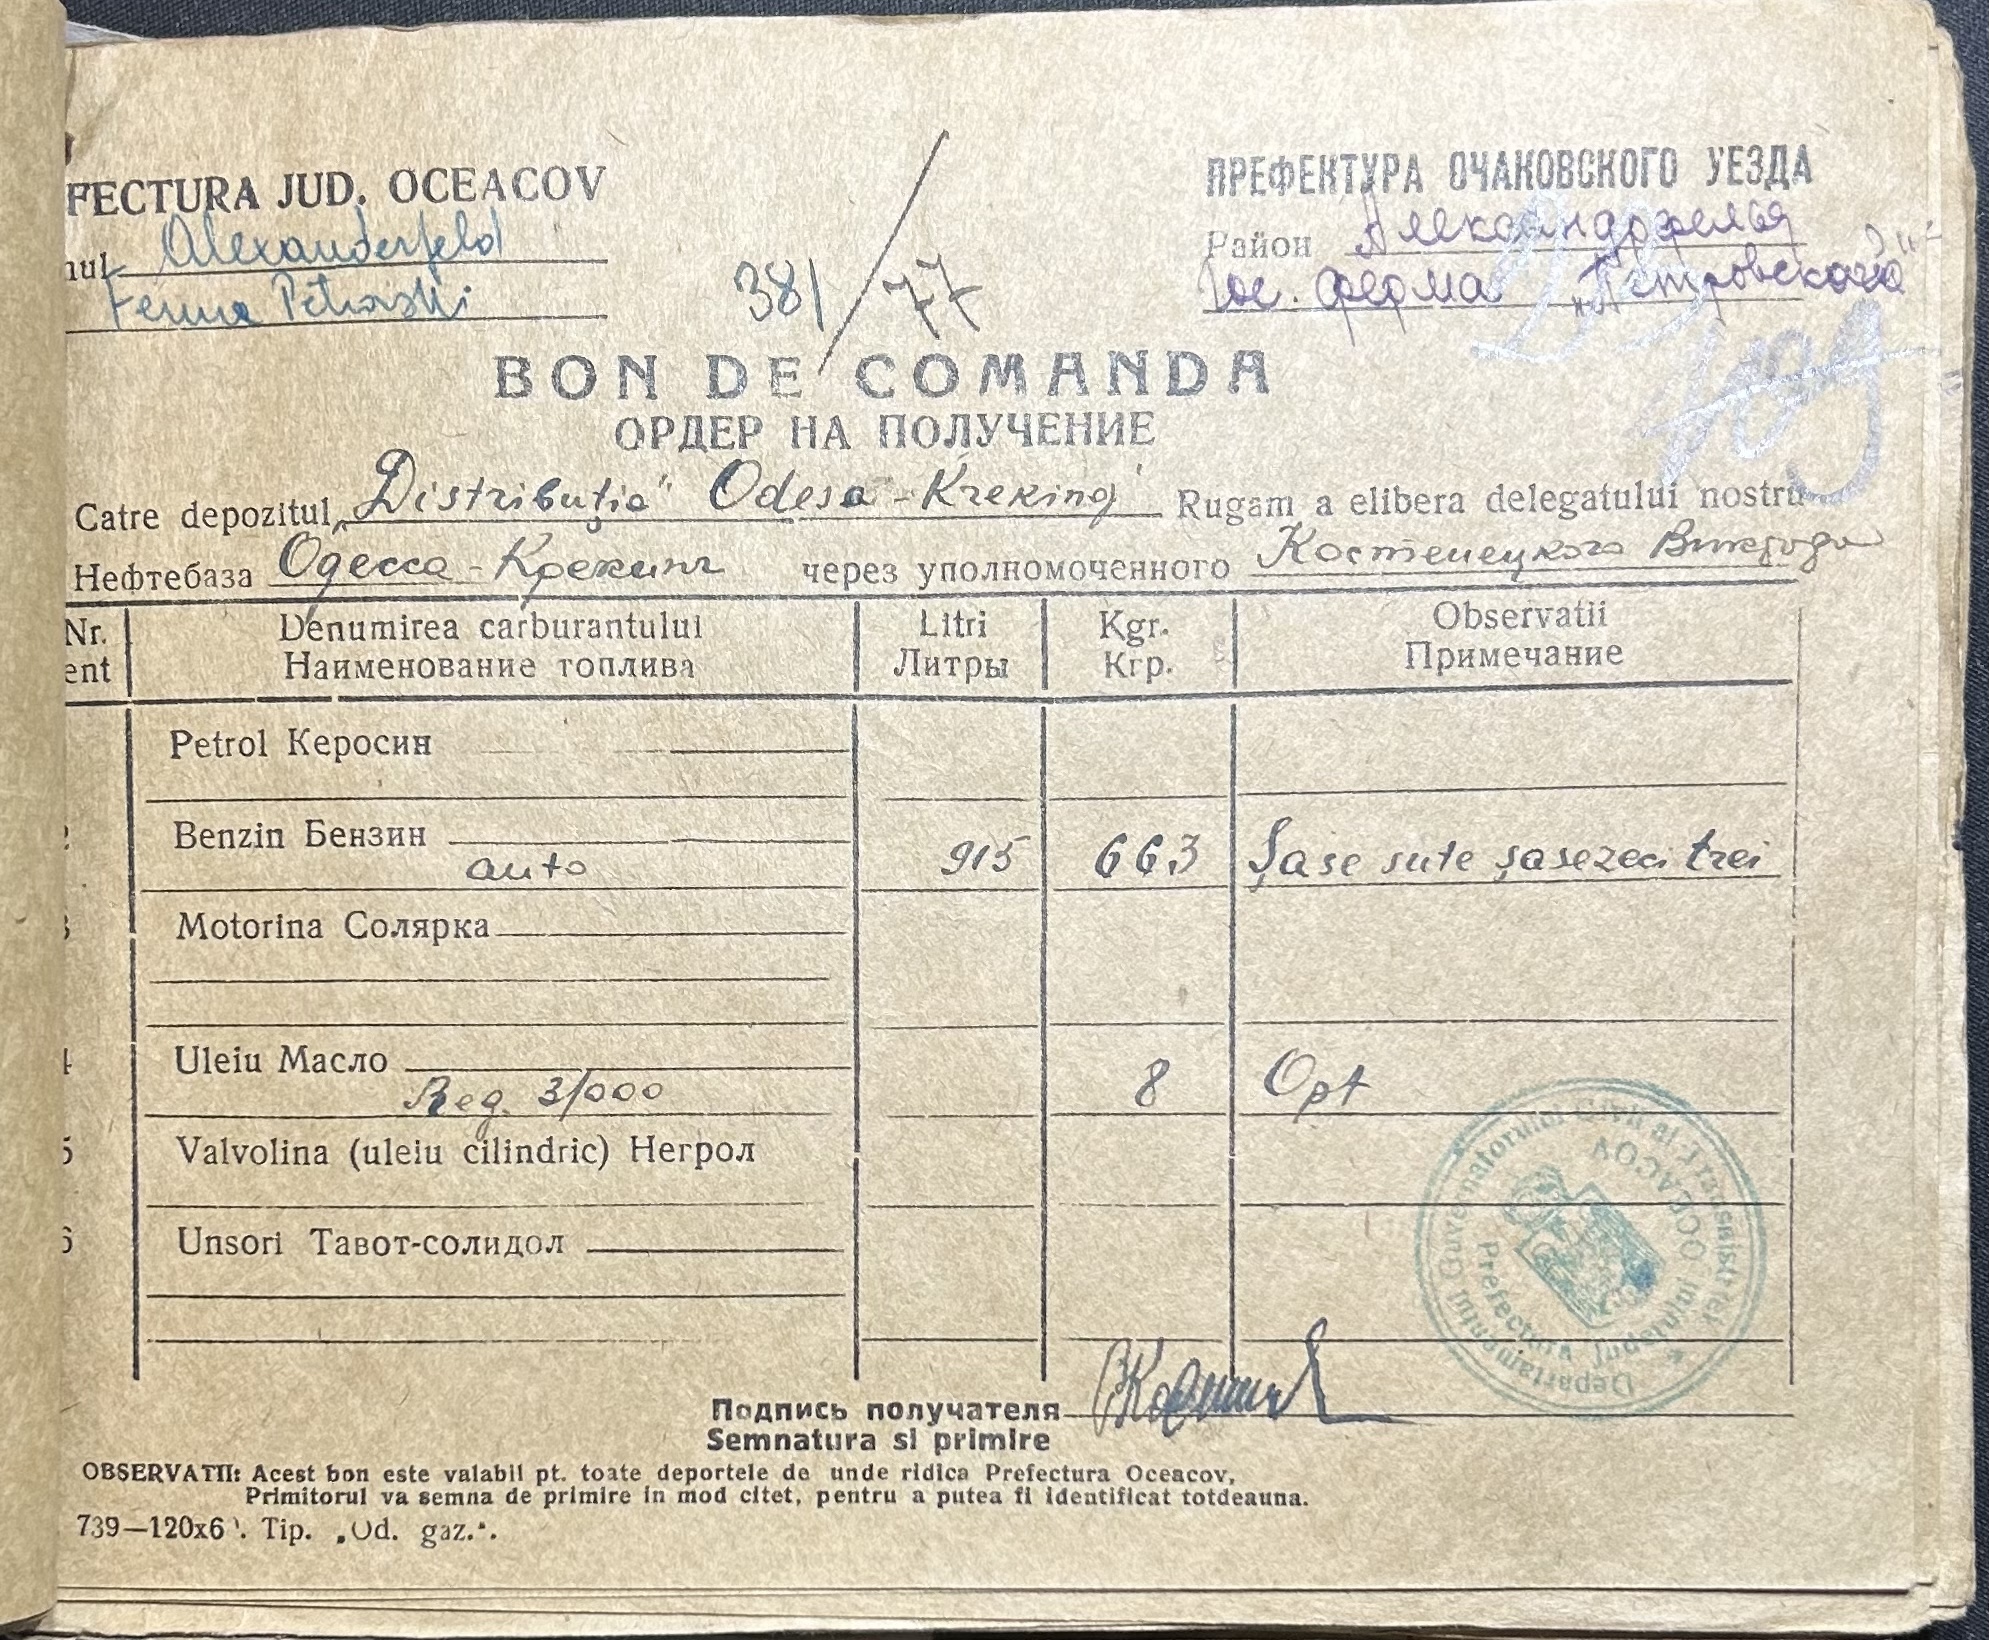 FECTURA JUD. OCEACOV
ПРЕФЕКТУРА ОЧАКОВСКОГО УЕЗДА
nul Alexanderfeld
Район Александрфельд
Ferma Petrovski
381/77
Гос. ферма „Петровского"
BON DE COMANDA
ОРДЕР НА ПОЛУЧЕНИЕ
Catre depozitul „Distribuţia" Odesa-Kreking Rugam a elibera delegatului nostru
Нефтебаза Одесса-Крекинг через уполномоченного Костенецкого Виктора
Nr. Denumirea carburantului Litri Kgr. Observatii
ent Наименование топлива Литры Кгр. Примечание
Petrol Керосин
2 Benzin Бензин
auto 915 663 Şase sute şasezeci trei
3 Motorina Солярка
4 Uleiu Масло
Reg. 3/000 8 Opt
5 Valvolina (uleiu cilindric) Негрол
6 Unsori Тавот-солидол
Guvernatorului Civil al Transnistriei
Departamentul
Prefectura Judeţului
OCEACOV
Подпись получателя
Semnatura si primire
OBSERVATII: Acest bon este valabil pt. toate deportele de unde ridica Prefectura Oceacov,
Primitorul va semna de primire in mod citet, pentru a putea fi identificat totdeauna.
739—120x6. Tip. „Od. gaz.".